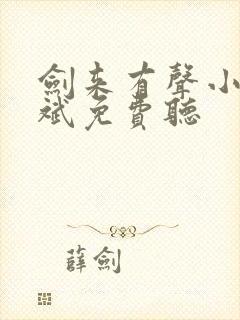 劍来有聲小
斌免費聽
薛劍